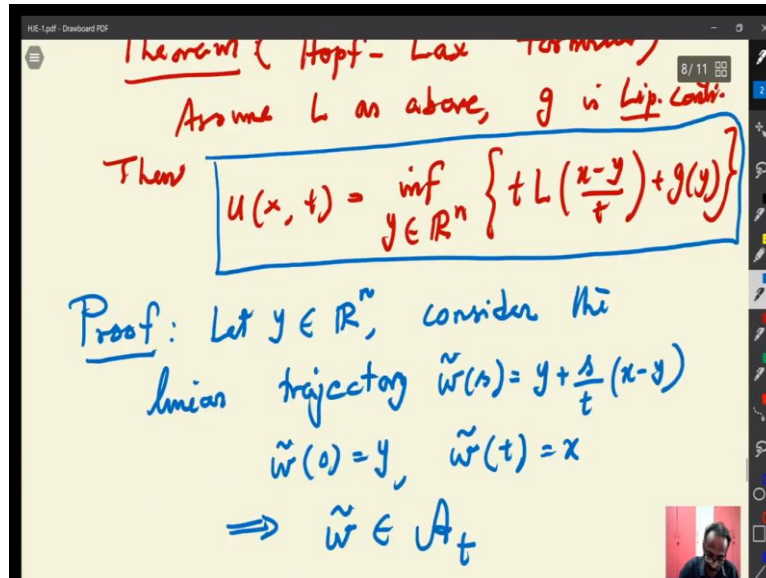 HJE-1.pdf - Drawboard PDF
8/11
Theorem ( Hopf-Lax formula)
Assume L as above, g is Lip. conti.
Then u(x, t) = inf_{y ∈ ℝⁿ} { t L((x-y)/t) + g(y) }
Proof : Let y ∈ ℝⁿ, consider the
linear trajectory w̃(s) = y + s/t (x-y)
w̃(0) = y, w̃(t) = x
⟹ w̃ ∈ A_t